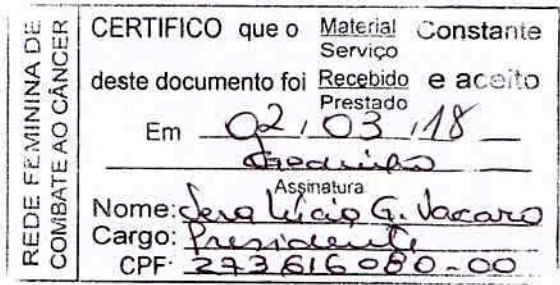 REDE FEMININA DE
COMBATE AO CÂNCER
CERTIFICO que o Material Constante
Serviço
deste documento foi Recebido e aceito
Prestado
Em 02/03/18
Assinatura
Nome: Lúcia G. Vacaro
Cargo: Presidente
CPF: 273616080-00